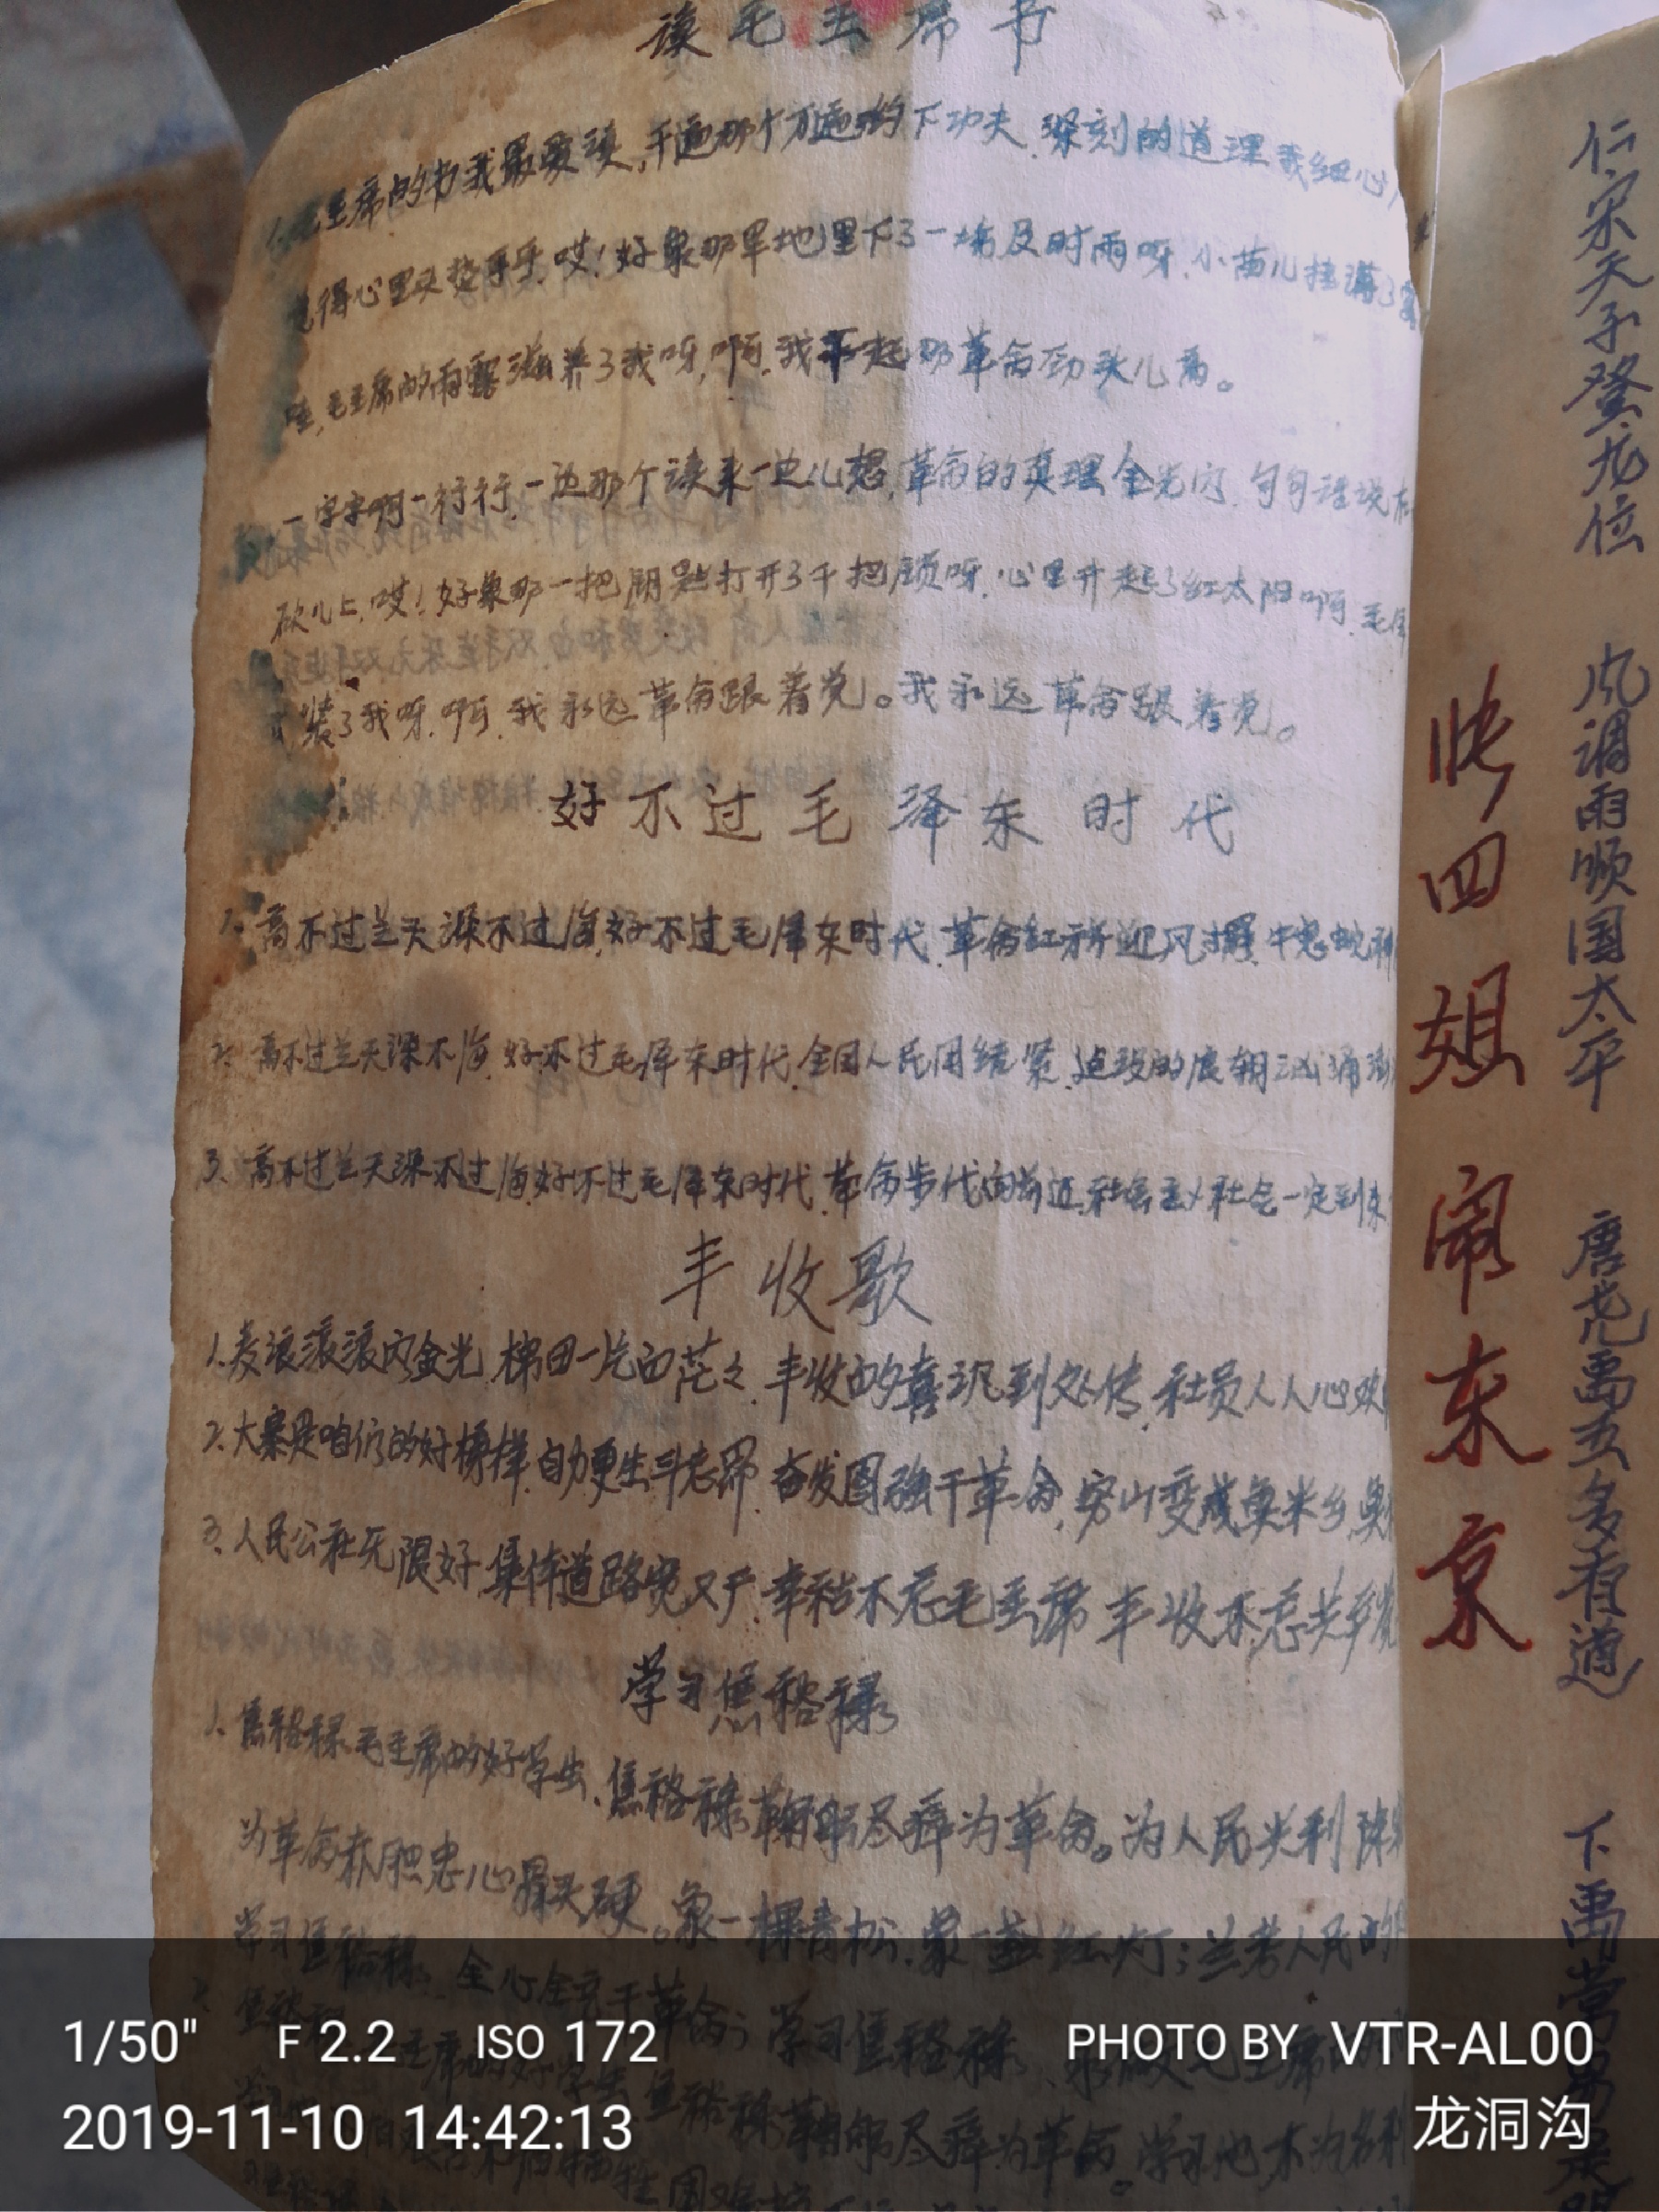 读毛主席书
毛主席的书我最爱读,千遍那个万遍哟下功夫.深刻的道理我细心
觉得心里头热乎乎.哎!好象那旱地里下了一场及时雨呀.小苗儿挂满了露
哇,毛主席的雨露滋养了我呀,啊.我干起那革命劲头儿高。
一字字啊一行行.一边那个读来一边儿想,革命的真理金光闪.句句话说在
砍儿上.哎!好象那一把钥匙打开了千把锁呀.心里升起了红太阳啊.毛
装了我呀.啊.我永远革命跟着党。我永远革命跟着党。
好不过毛泽东时代
1.高不过兰天深不过海.好不过毛泽东时代.革命红旗迎风摆.牛鬼蛇神
2.高不过兰天深不海.好不过毛泽东时代.全国人民团结紧.建设的
3.高不过兰天深不过海.好不过毛泽东时代.革命步代向前迈.社会主义社会一定到来
丰收歌
1.麦浪滚滚闪金光.棉田一片白茫々.丰收的喜讯到处传.社员人人心欢
2.大寨是咱们的好榜样.自力更生斗志昂.奋发图强干革命,穷山变成鱼米乡.鱼
3.人民公社无限好.集体道路宽又广.幸福不忘毛主席丰收不忘共产党
学习焦裕禄
1.焦裕禄毛主席的好学生、焦裕禄鞠躬尽瘁为革命。为人民兴利除
为革命赤胆忠心骨头硬。象一棵青松.象一盏红灯;兰考人民的
学习焦裕禄.全心全意干革命;学习焦裕禄、永做毛主席的
2.焦裕禄毛主席的好学生焦裕禄鞠躬尽瘁为革命。学习他不为名利
快四姐闹东京
仁宋天子登龙位 风调雨顺国太平 唐尧禹五多有道 下禹
1/50" F 2.2 ISO 172
2019-11-10 14:42:13
PHOTO BY VTR-AL00
龙洞沟